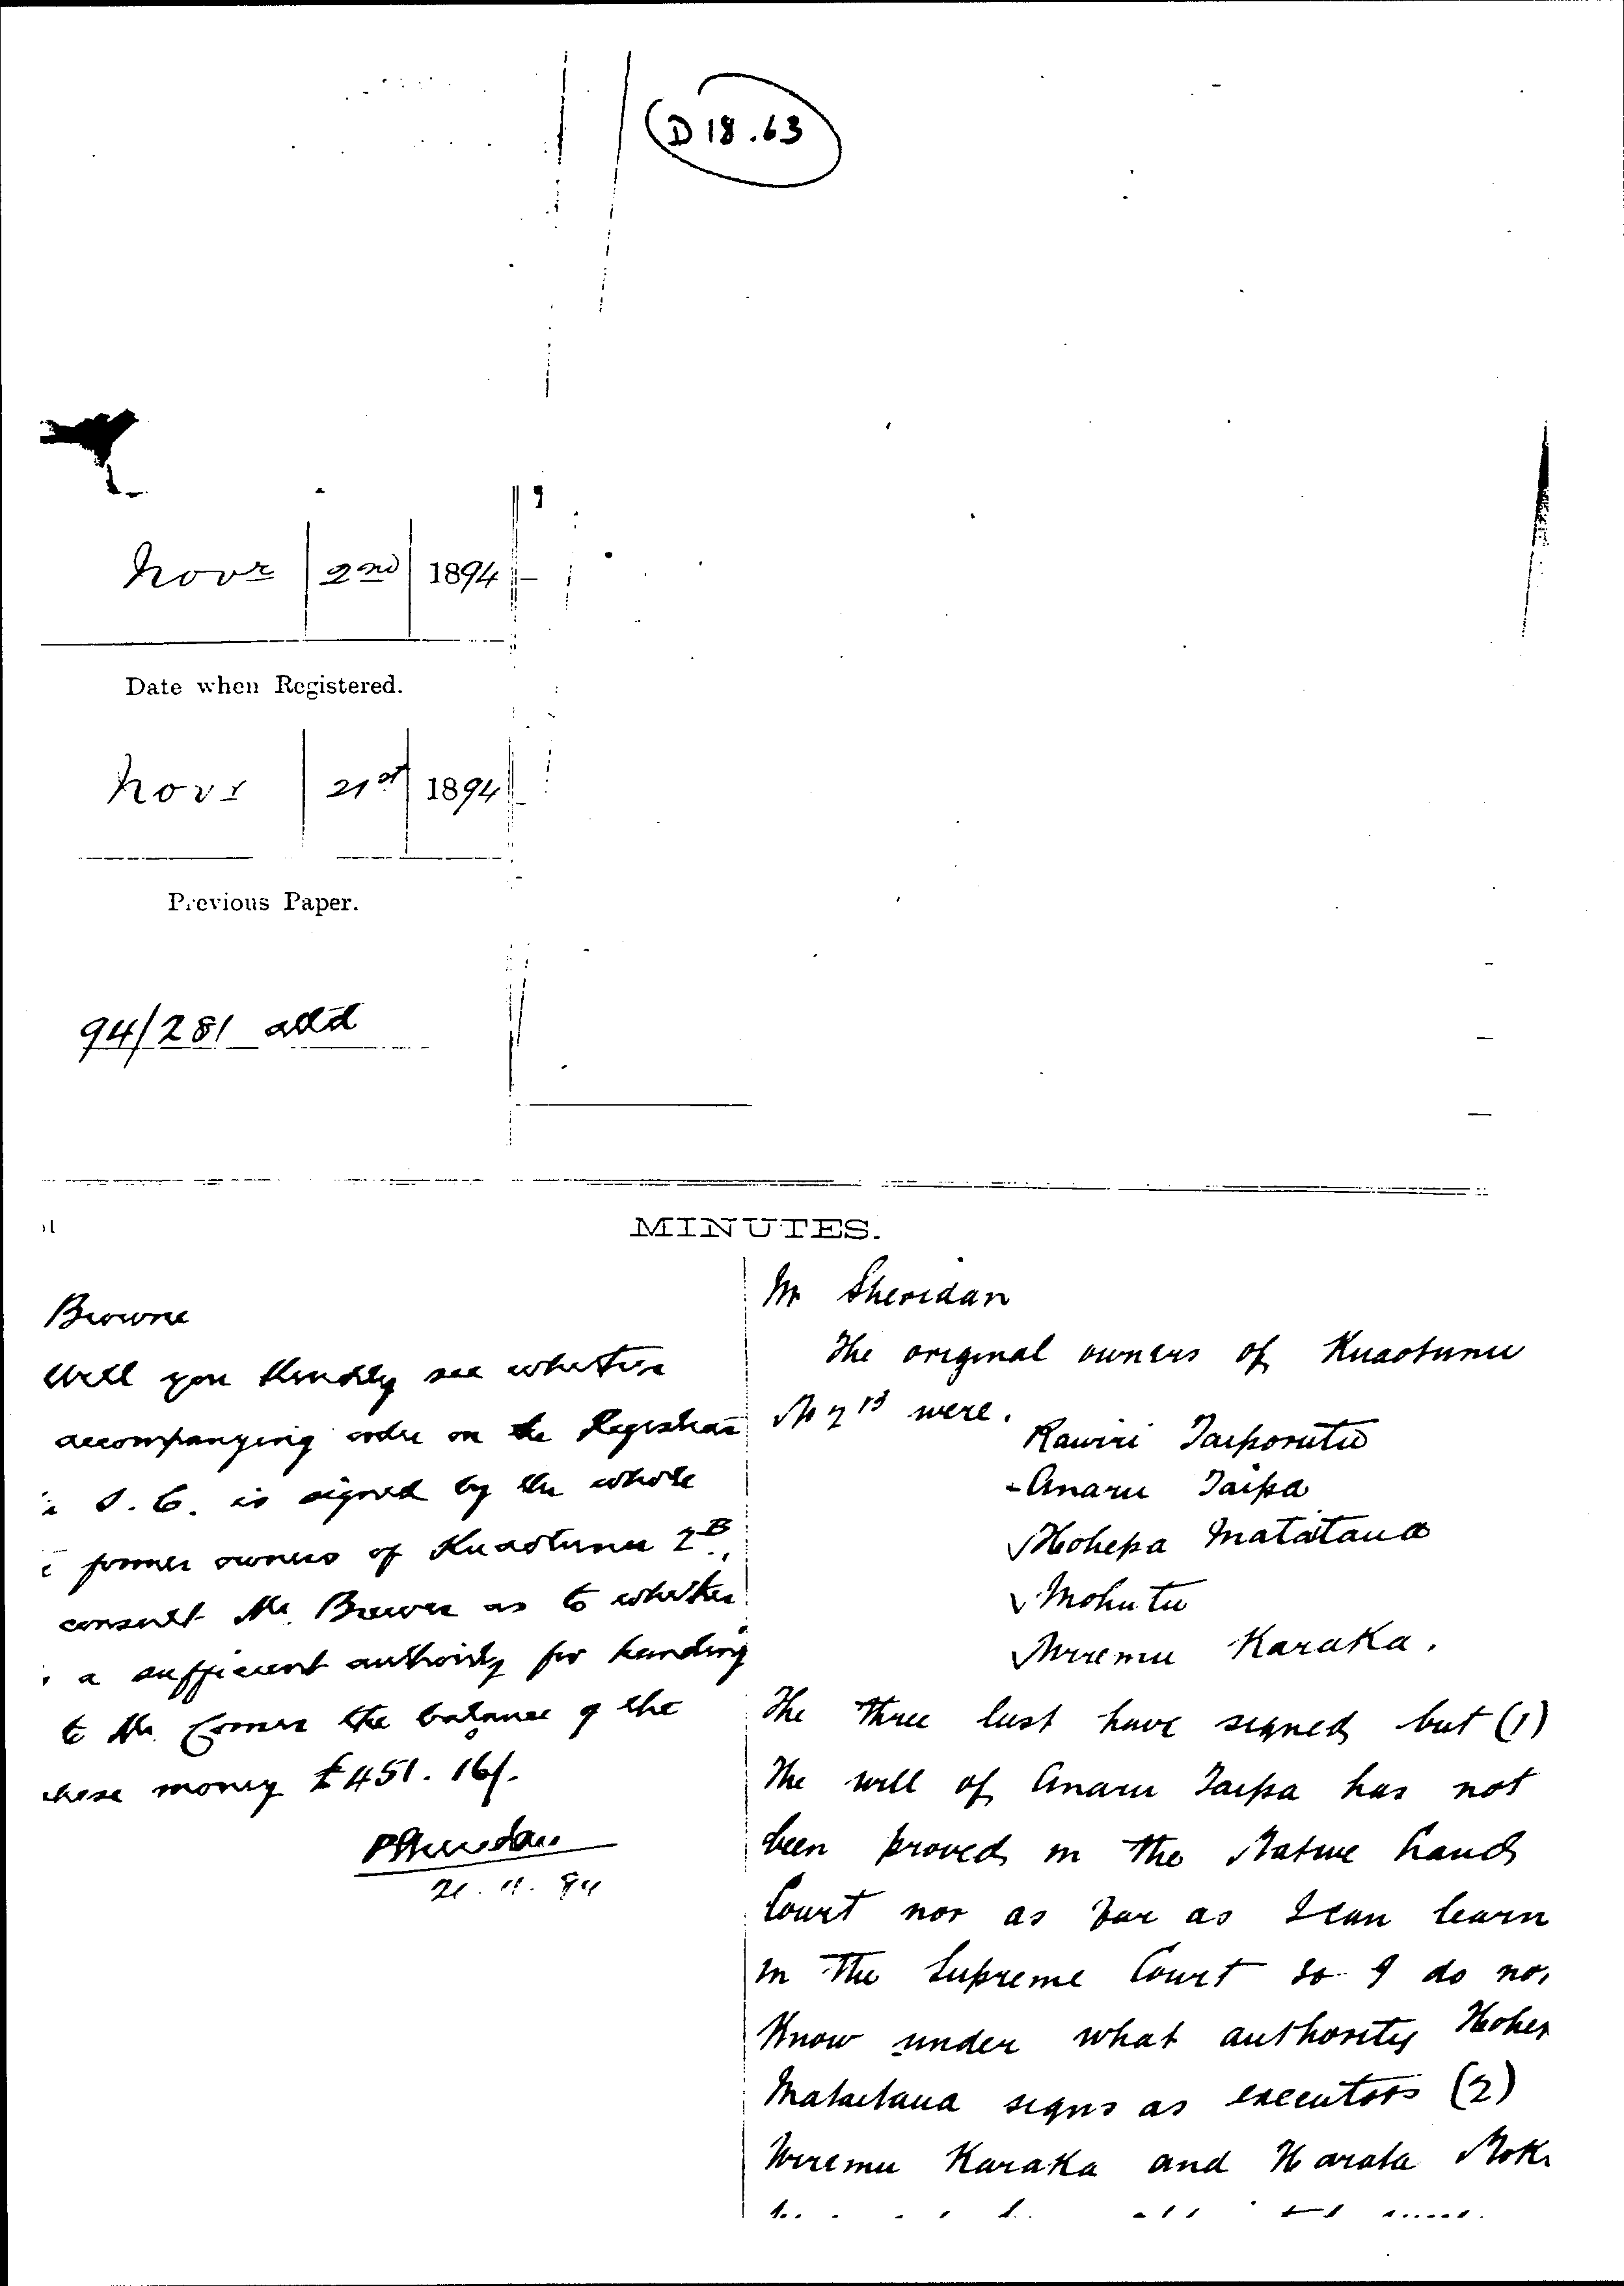 D 18.63
Novr 2nd 1894
Date when Registered.
Novr 21st 1894
Previous Paper.
94/281 attd
MINUTES.
Browne
Will you kindly see whether
accompanying order on the Registrar
S. C. is signed by the whole
former owners of Kuaotunu 2B.,
consult Mr. Brewer as to whether
a sufficient authority for handing
to Mr. Comer the balance of the
chase money £451. 16/.
P Sheridan
21. 11. 94
Mr Sheridan
The original owners of Kuaotunu
No 2B were.
Rawiri Taiporutu
- Anaru Taipa
√ Hohepa Mataitaua
√ Mohutu
√ Wiremu Karaka.
The three last have signed but (1)
The will of Anaru Taipa has not
been proved in the Native Land
Court nor as far as I can learn
in the Supreme Court so I do no
know under what authority Hohep
Mataitaua signs as executors (2)
Wiremu Karaka and Harata